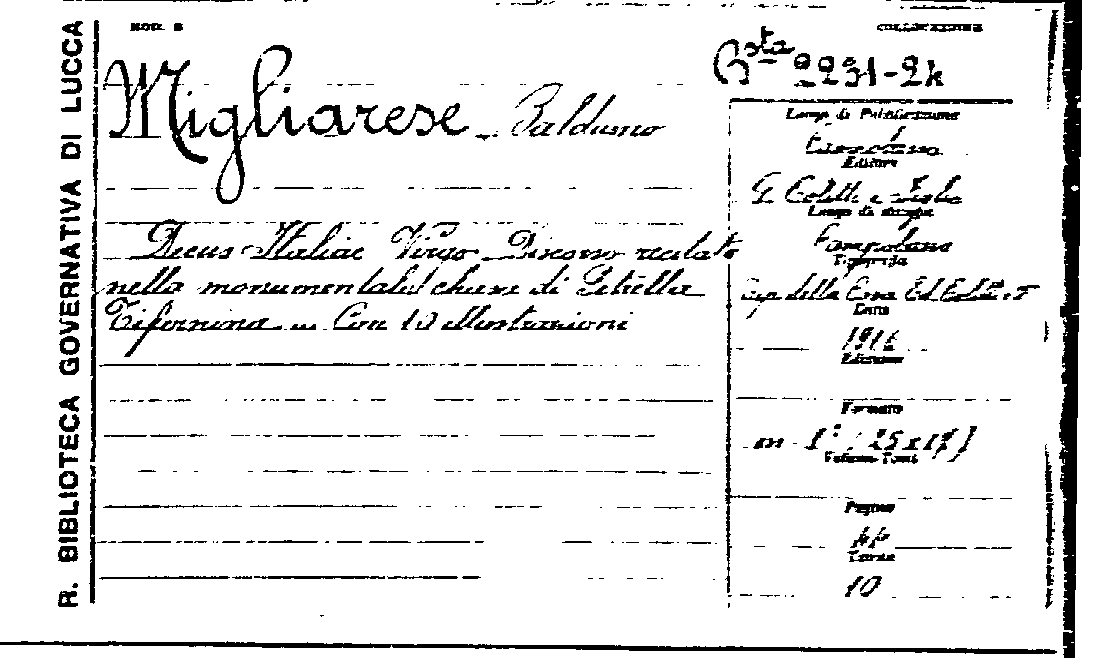 R. BIBLIOTECA GOVERNATIVA DI LUCCA
MOD. B
COLLOCAZIONE
Bsta 2231-24
Migliarese Baldumo
Decus Italiae Virgo Discorso recitato
nella monumental chiesa di Petrella
Tifernina ... Con 10 illustrazioni
Luogo di Pubblicazione
Campobasso
Editore
G. Colitti e Figlio
Luogo di stampa
Campobasso
Tipografia
Tip. della Casa Ed. Colitti e F
Data
1916
Edizione
Formato
in 8° (25x17)
Volumi-Tomi
Pagine
44
Tavole
10